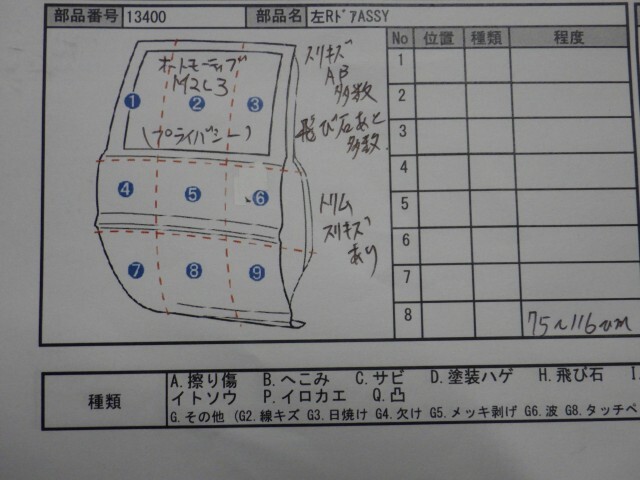 部品番号 13400 部品名 左RドアASSY
No 位置 種類 程度
オートモーティブ
M2C3
(プライバシー)
スリキズ
AB
多数
飛び石あと
多数
トリム
スリキズ
あり
1 2 3
4 5 6
7 8 9
1
2
3
4
5
6
7
8 75~116um
種類
A.擦り傷 B.へこみ C.サビ D.塗装ハゲ H.飛び石 I
イトソウ P.イロカエ Q.凸
G.その他 (G2.線キズ G3.日焼け G4.欠け G5.メッキ剥げ G6.波 G8.タッチペ